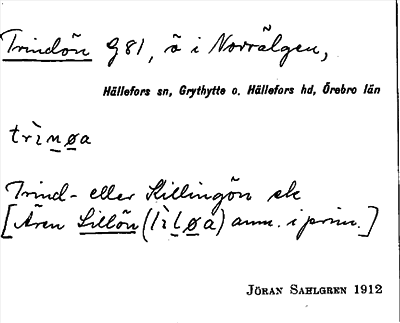 Trindön G81, ö i Norrälgen,
Hällefors sn, Grythytte o. Hällefors hd, Örebro län
trìnøa
Trind- eller Killingön ek
[Även Lillön (lìløa) anm. i prim.]
JÖRAN SAHLGREN 1912